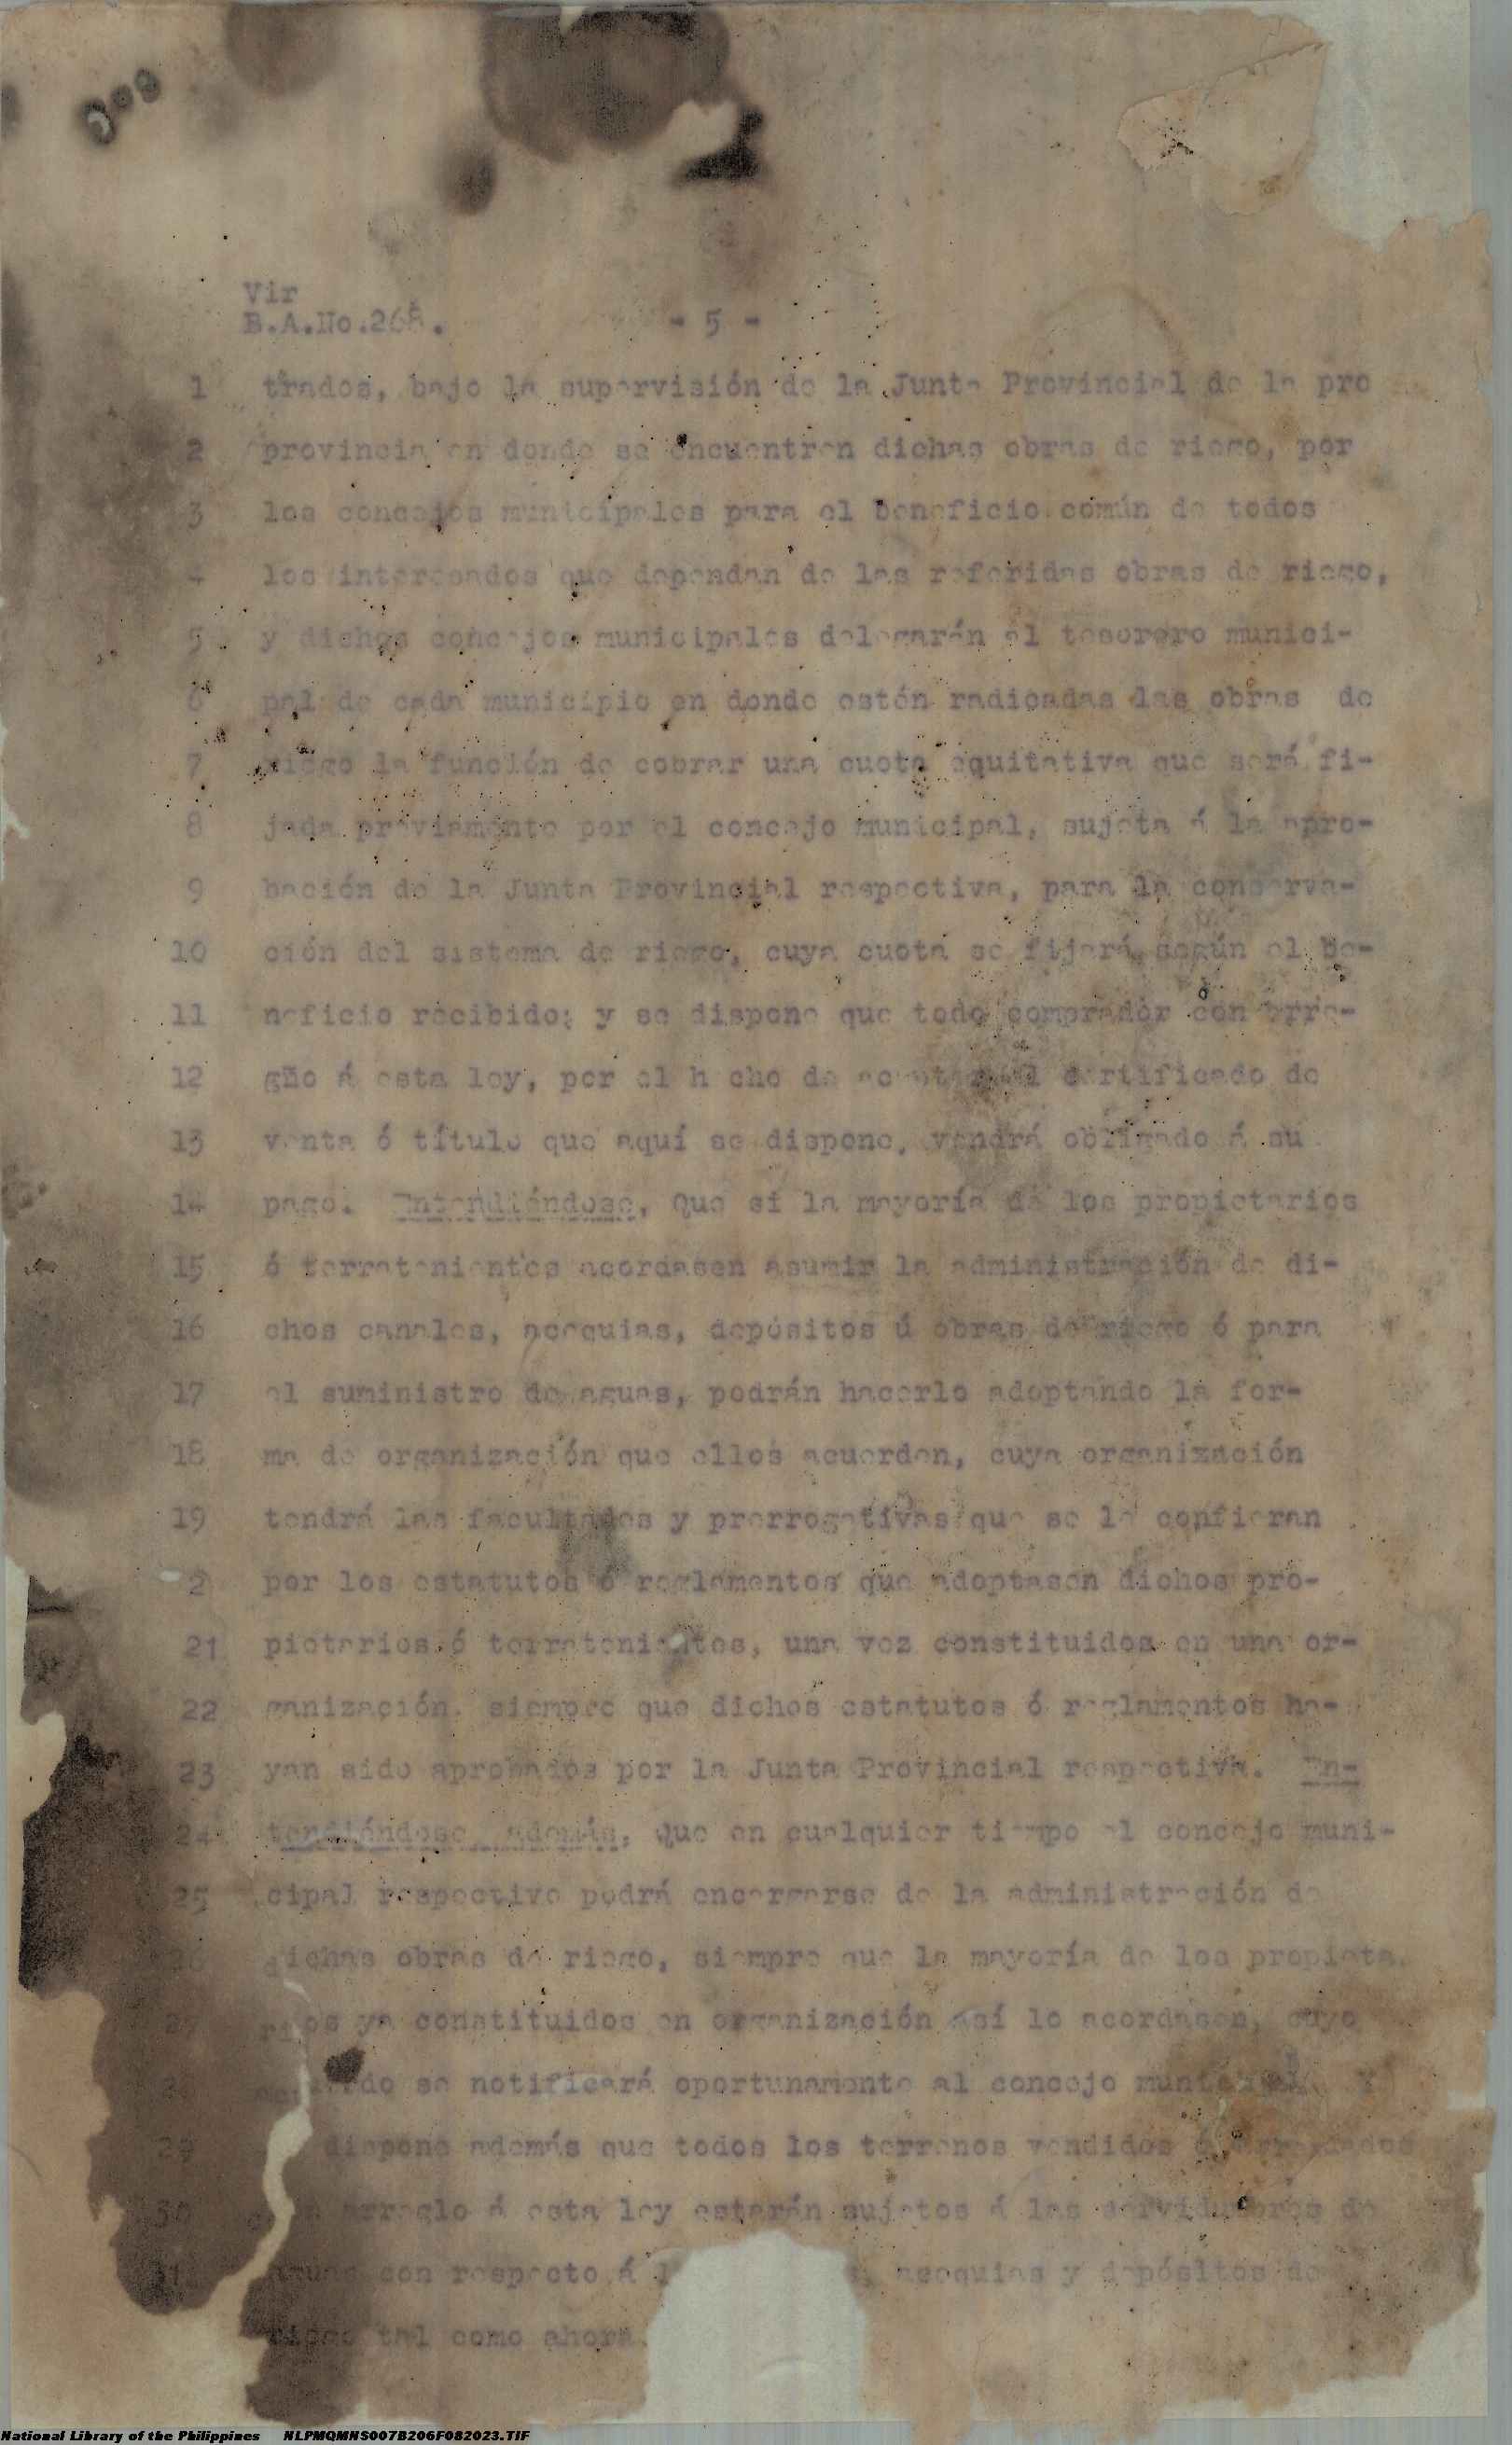 Vir
B.A.No.268. - 5 -
1 trados, bajo la supervisión de la Junta Provincial de la pro
2 provincia en donde se encuentren dichas obras de riego, por
3 los concejos municipales para el beneficio común de todos
4 los interesados que dependan de las referidas obras de riego,
5 y dichos concejos municipales delegarán al tesorero munici-
6 pal de cada municipio en donde estén radicadas las obras de
7 riego la función de cobrar una cuota equitativa que será fi-
8 jada previamente por el concejo municipal, sujeta á la apro-
9 bación de la Junta Provincial respectiva, para la conserva-
10 ción del sistema de riego, cuya cuota se fijará según el be-
11 neficio recibido; y se dispone que todo comprador con arre-
12 glo á esta ley, por el h cho de aceptar el certificado de
13 venta ó título que aquí se dispone, vendrá obligado á su
14 pago. Entendiéndose, Que si la mayoría de los propietarios
15 ó terratenientes acordasen asumir la administración de di-
16 chos canales, acequias, depósitos ú obras de riego ó para
17 el suministro de aguas, podrán hacerlo adoptando la for-
18 ma de organización que ellos acuerden, cuya organización
19 tendrá las facultades y prerrogativas que se le confieran
2 por los estatutos ó reglamentos que adoptasen dichos pro-
21 pietarios ó terratenientes, una vez constituidos en una or-
22 ganización, siempre que dichos estatutos ó reglamentos ha-
23 yan sido aprobados por la Junta Provincial respectiva. En-
24 tendiéndose, además, Que en cualquier tiempo el concejo muni-
25 cipal respectivo podrá encargarse de la administración de
26 dichas obras de riego, siempre que la mayoría de los propieta
27 rios ya constituidos en organización así lo acordasen, cuyo
28 do se notificará oportunamente al concejo municipal. Y
29 dispone además que todos los terrenos vendidos ó arrendados
30 arreglo á esta ley estarán sujetos á las servidumbres de
31 aguas con respecto á acequias y depósitos de
riego tal como ahora
National Library of the Philippines NLPMQMNS007B206F082023.TIF